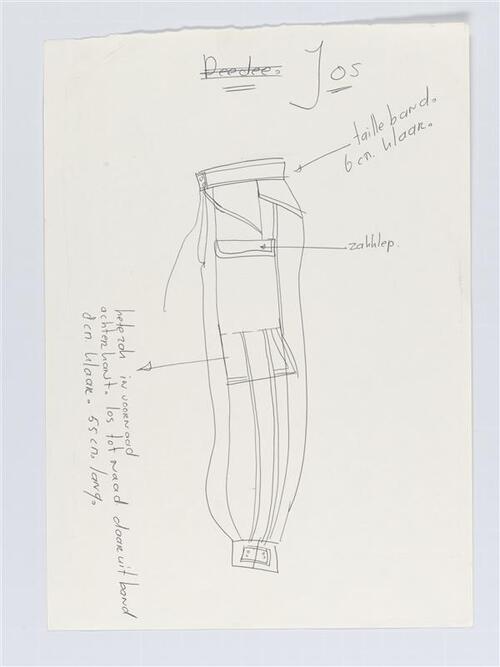 Deedee. Jos
tailleband.
6 cm. klaar.
zakklep.
hele zak in voornaad
achterkant. los tot naad daaruit band
cm. klaar. 55 cm. lang.